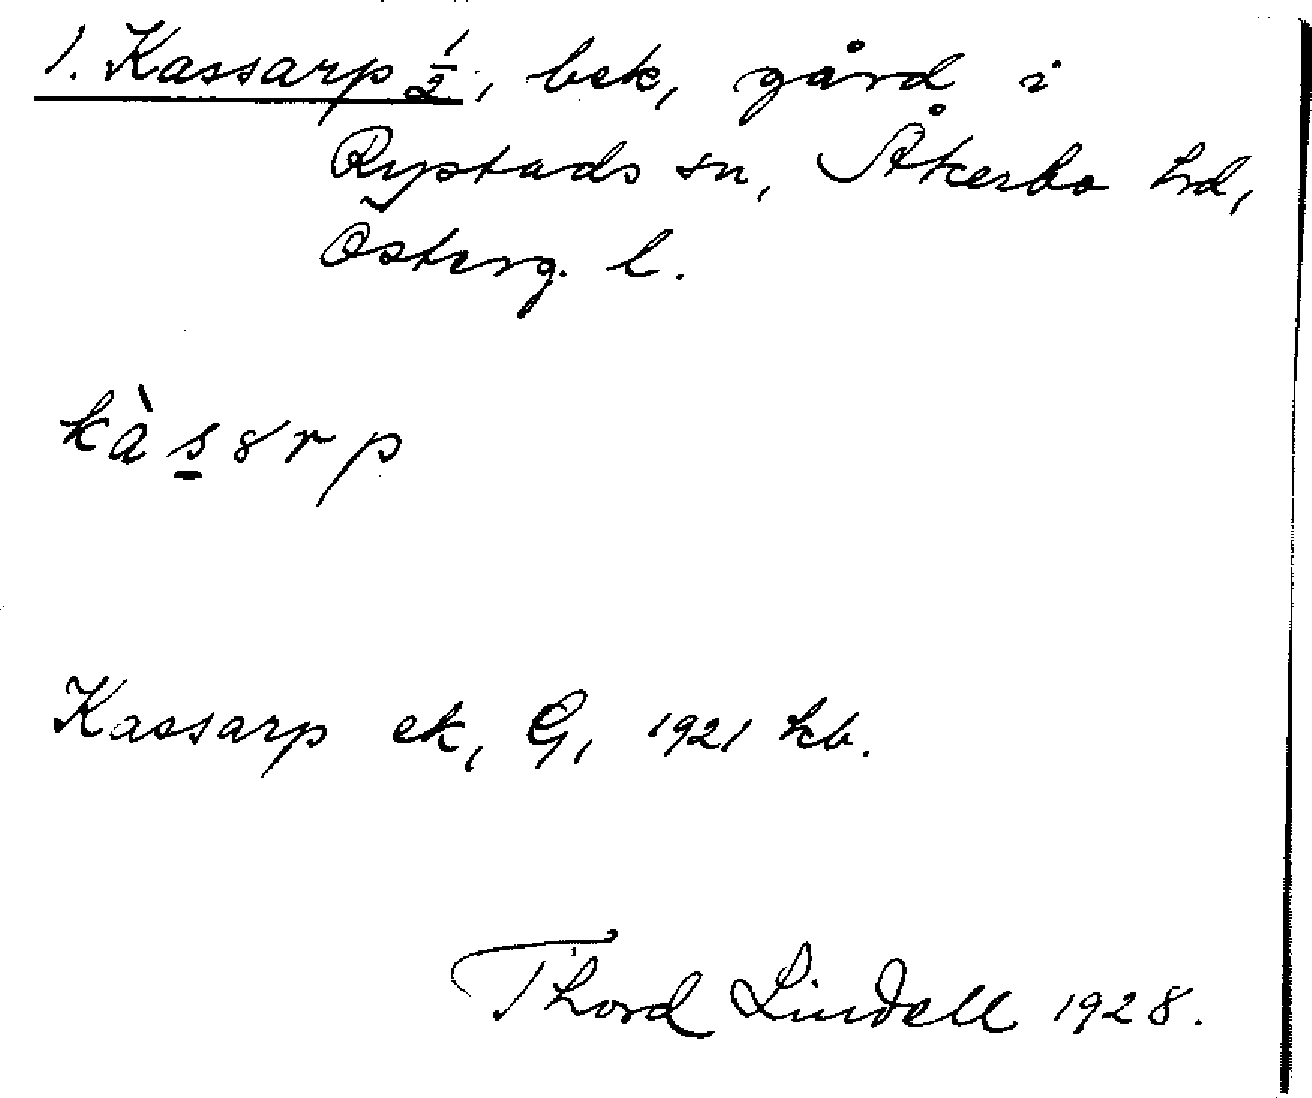 1. Kassarp ½, bek, gård i
Rystads sn, Åkerbo hd,
Österg. l.
kàs̲8rp
Kassarp ek, G, 1921 kb.
Thord Lindell 1928.